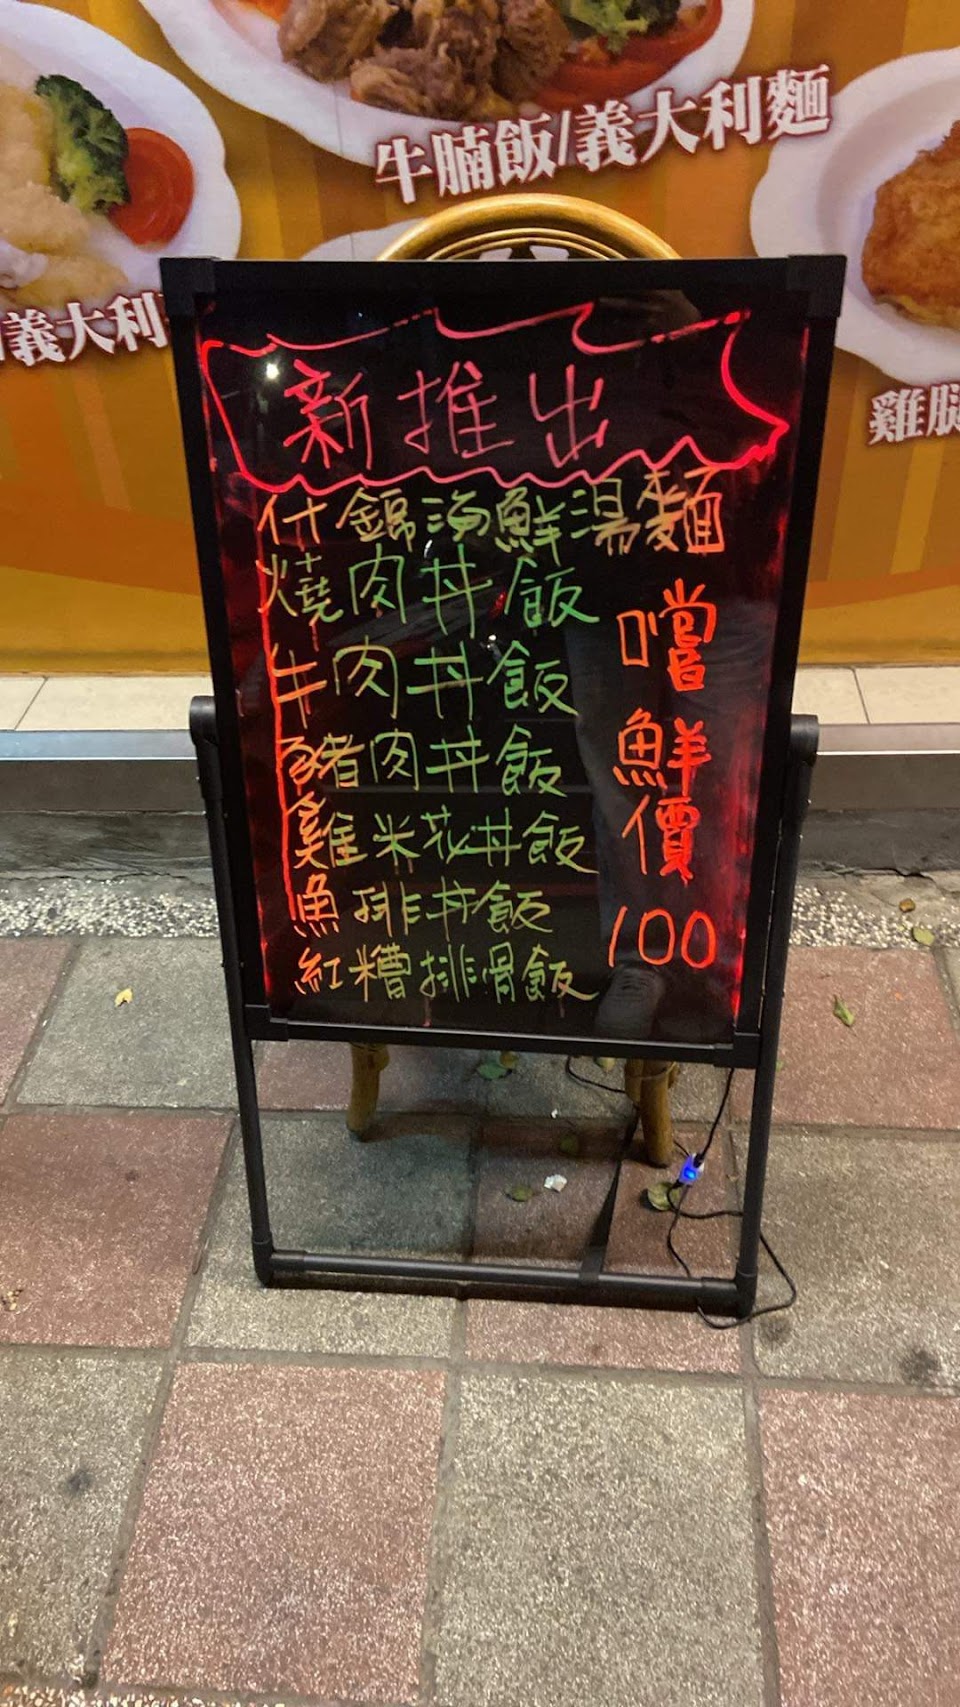 牛腩飯/義大利麵
義大利
雞腿
新推出
什鍋海鮮湯麵
燒肉丼飯
牛肉丼飯
豬肉丼飯
雞米花丼飯
魚排丼飯
紅糟排骨飯
嚐鮮價
100